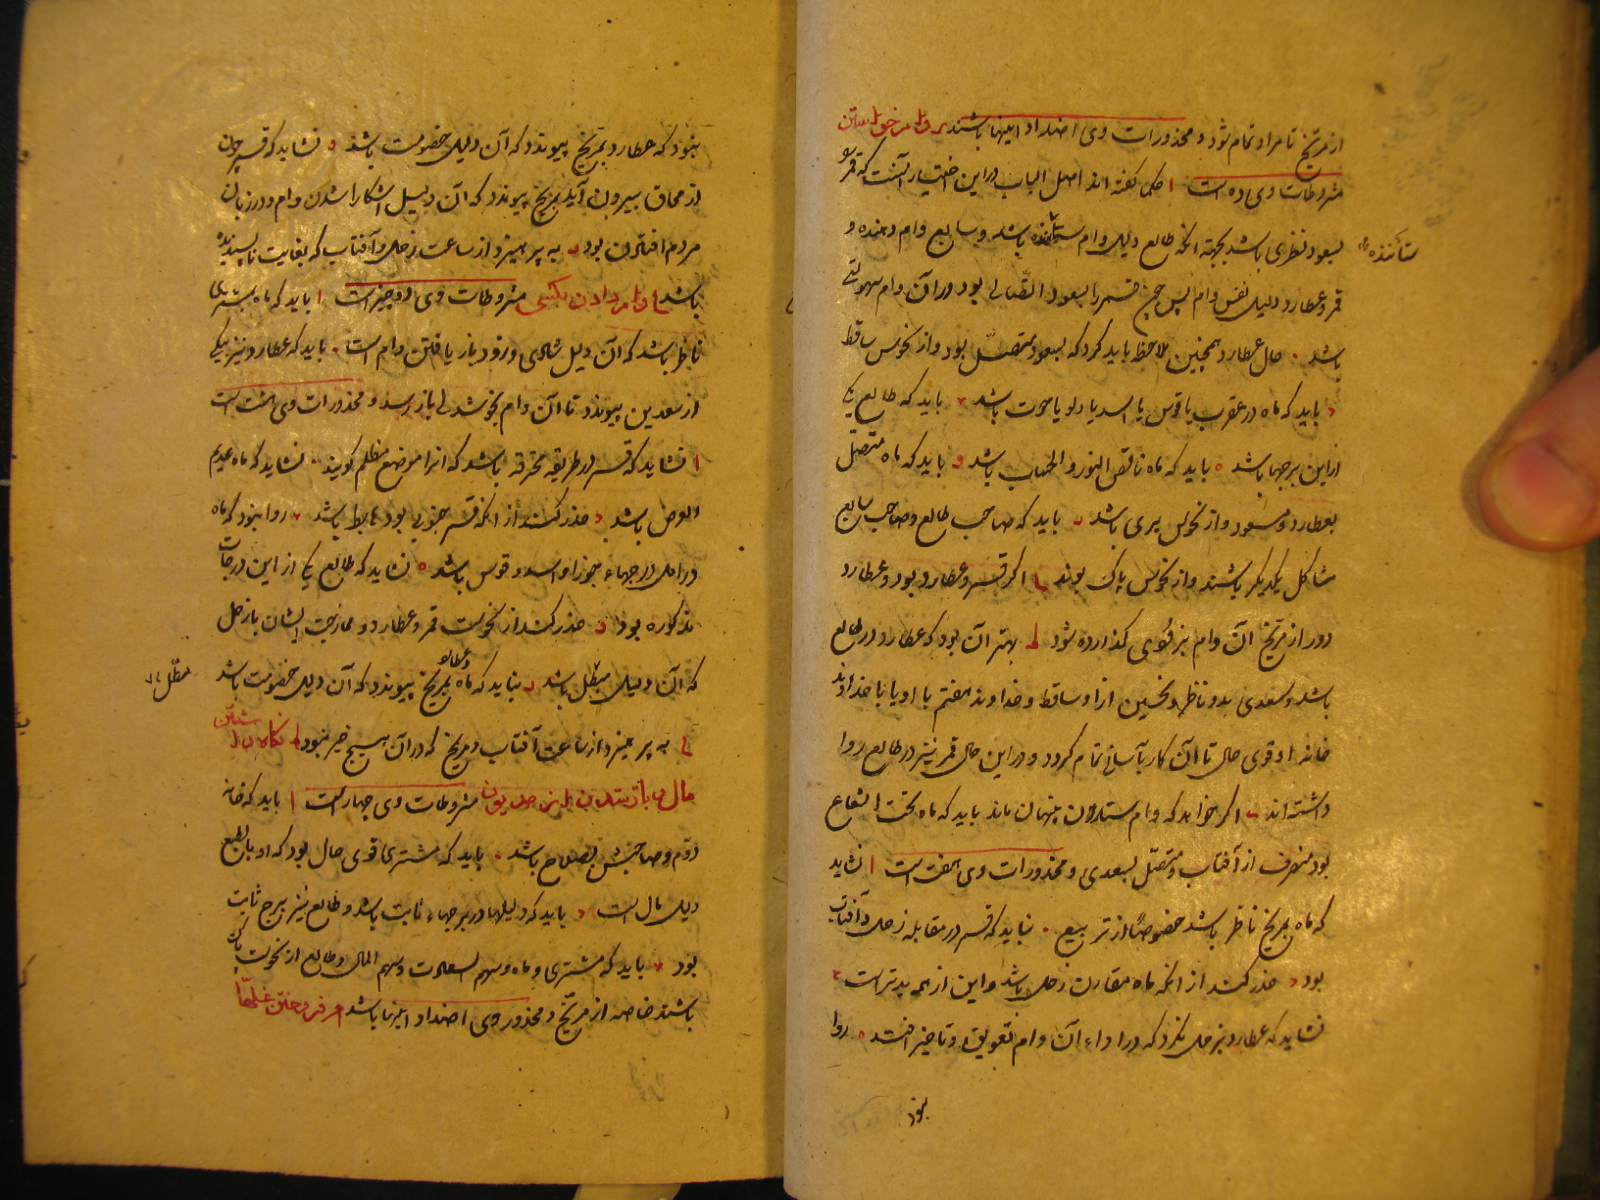 از مریخ تا مراد تمام شود و محذورات وی اضداد اینها باشند
مشروطات وی ده است ۱ حکما گفته اند اصل الباب در این اختیار آنست که قمر
بسعود نظری باشد بجهته انکه طالع دلیل وام ستاننده باشد و سابع وام دهنده و
ستاننده
قمر و عطارد دلیل نفس وام پس چون قمر را بسعود اتصالی بود در آن وام سهولتی
باشد ۲ حال عطارد همچنین ملاحظه باید کرد که بسعود متصل بود و از نحوس ساقط
۳ باید که ماه در عقرب یا قوس یا اسد یا دلو یا حوت باشد ۴ باید که طالع یکی
ازین برجها باشد ۵ باید که ماه ناقص النور و الحساب باشد ۶ باید که ماه متصل
بعطارد مسعود و از نحوس بری باشد ۷ باید که صاحب طالع و صاحب سابع
مشاکل یکدیگر باشند و از نحوس پاک بوند ۸ اگر قمر و عطارد بود و عطارد
دور از مریخ آن وام بزودی گذارده شود ۹ بهتر آن بود که عطارد در طالع
باشد و سعدی بدو ناظر و نحسین ازو ساقط و خداوند هفتم با او یا با خداوند
خانه او قوی حال تا آن کار بآسانی تمام گردد و در این حال قمر نیز در طالع روا
داشته اند ۱۰ اگر خواهد که وام ستدن پنهان ماند باید که ماه تحت الشعاع
بود منصرف از آفتاب و متصل بسعدی و محذورات وی هفت است ۱ نشاید
که ماه بمریخ ناظر باشد خصوصا از تربیع ۲ نباید که قمر در مقابله زحل و آفتاب
بود ۳ حذر کنند از انکه ماه مقارن زحل باشد و این از همه بدتر است ۴
نشاید که عطارد بزحل نگرد که در اداء آن وام تعویق و تاخیر افتد ۵ روا
نبود
نبود که عطارد بمریخ پیوندد که آن دلیل خصومت باشد ۶ نشاید که قمر چون
از محاق بیرون آید بمریخ پیوندد که آن دلیل آشکارا شدن وام و در زبان
مردم افتادن بود ۷ به پرهیزد از ساعت زحل و آفتاب که بغایت ناپسندیده
باشد وام دادن بکسی مشروطات وی دو چیز است ۱ باید که ماه بمشتری
ناظر باشد که آن دلیل شادی و زود باز یافتن وام است ۲ باید که عطارد نیز بیکی
از سعدین پیوندد تا آن وام بخوشدلی باز رسد و محذورات وی هشت است
۱ نشاید که قمر در طریقه محترقه باشد که آنرا موضع مظلم گویند ۲ نشاید که ماه عدیم
العرض باشد ۳ حذر کنند از انکه قمر جنوبی بود هابط باشد ۴ روا نبود که ماه
در اول درجهاء جوزا و اسد و قوس باشد ۵ نشاید که طالع یکی از این درجات
مذکوره بود ۶ حذر کنند از نحوست قمر و عطارد و ممازجت ایشان با زحل
که آن دلیل مطل باشد ۷ نباید که ماه و عطارد بمریخ پیوندد که آن دلیل خصومت باشد
مطل
۸ به پرهیزد از ساعت آفتاب و مریخ که در آن هیچ خیر نبود
مشروطات وی چهار است ۱ باید که خانه
دوم و صاحبش بصلاح باشد ۲ باید که مشتری قوی حال بود که او بالطبع
دلیل مال است ۳ باید که دلیلها در برجهاء ثابت باشد و طالع نیز برج ثابت
بود ۴ باید که مشتری و ماه و سهم السعادت و سهم المال و طالع از نحوست پاک
باشند خاصه از مریخ و محذور وی اضداد اینها باشد فروختن غلها